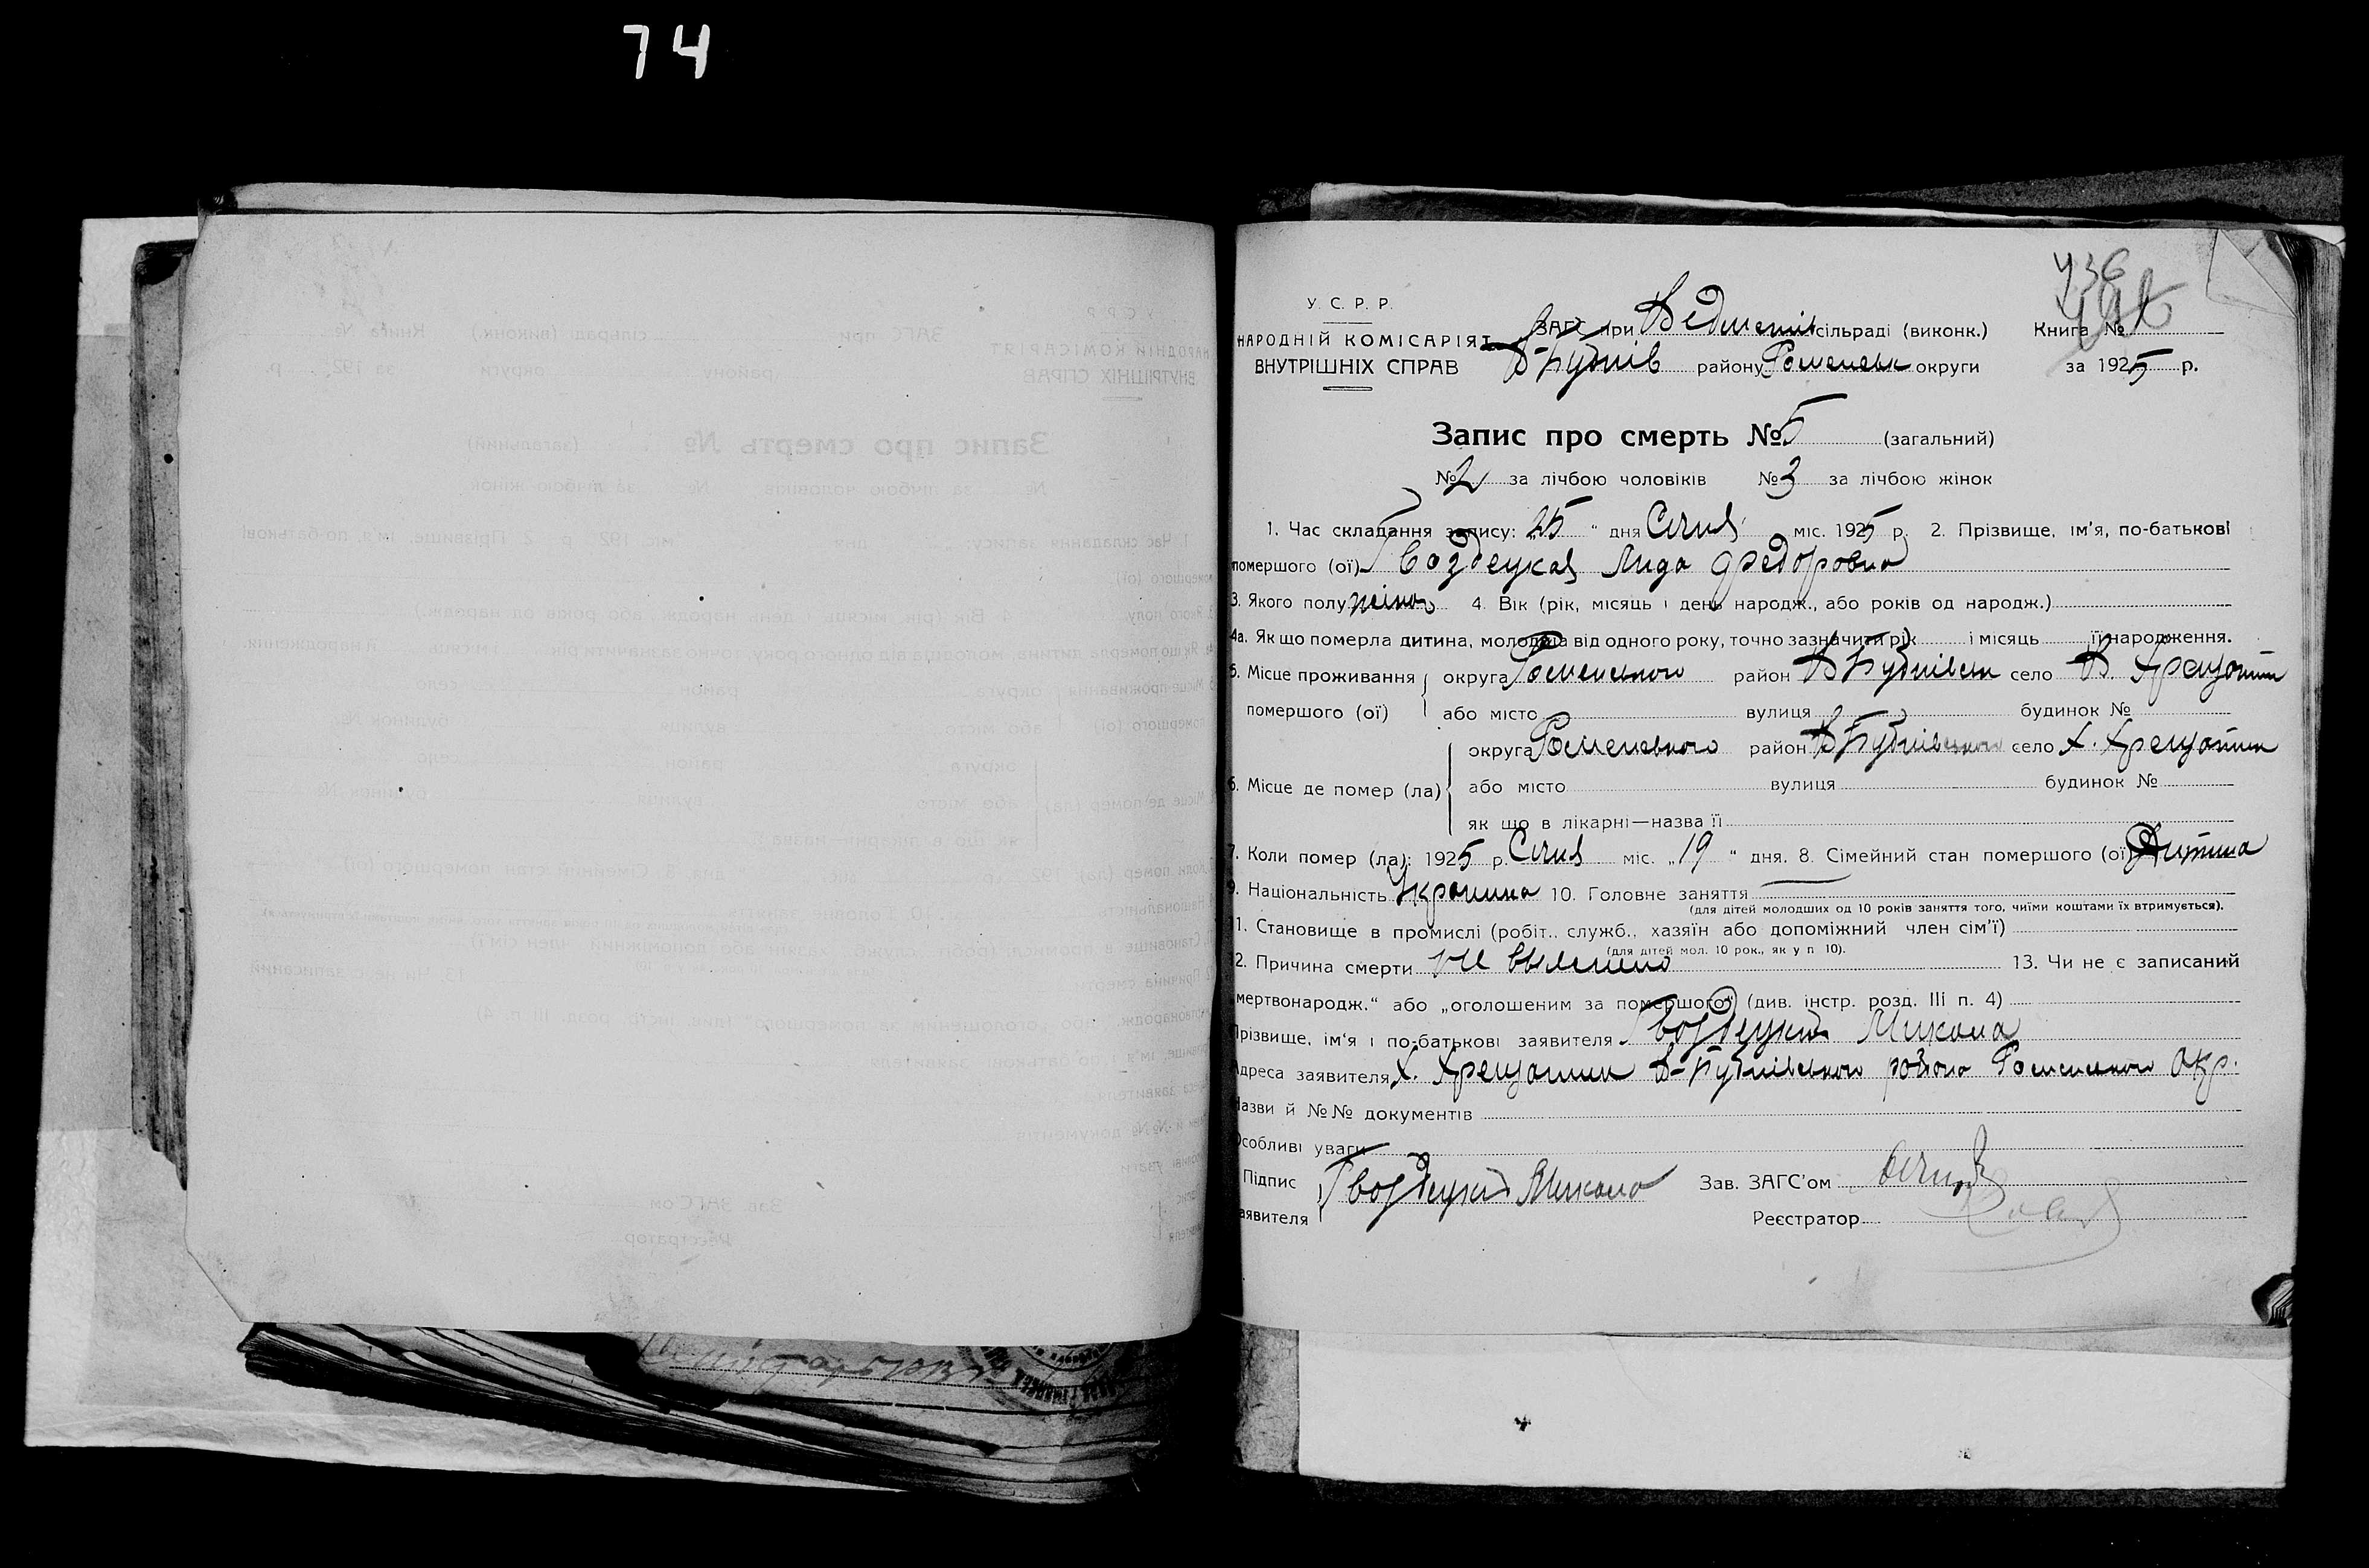 74
У. С. Р. Р.
НАРОДНІЙ КОМІСАРІЯТ
ВНУТРІШНІХ СПРАВ
ЗАГС при сільраді (виконк.)
району Роменськ округи
436
Книга №
за 1925 р.
Запис про смерть № 5 (загальний)
№ 2 за лічбою чоловіків № 3 за лічбою жінок
1. Час складання запису: 25 " дня Січня міс. 1925 р. 2. Прізвище, ім'я, по-батькові
помершого (ої) Гвоздецкая Лида Федоровна
3. Якого полу жіноч 4. Вік (рік, місяць і день народж., або років од народж.)
4а. Як що померла дитина, молодша від одного року, точно зазначити рік і місяць її народження.
5. Місце проживання округа Роменського район В Бубнівськ село Хрещатик
помершого (ої) або місто вулиця будинок №
6. Місце де помер (ла) округа Роменського район В Бубнівського село Х. Хрещатик
або місто вулиця будинок №
як що в лікарні—назва її
7. Коли помер (ла): 1925 р. Січня міс. „19 " дня. 8. Сімейний стан помершого (ої) Дитина
9. Національність Україника 10. Головне заняття
(для дітей молодших од 10 років заняття того, чиїми коштами їх втримується).
1. Становище в промислі (робіт., служб., хазяїн або допоміжний член сім'ї)
(для дітей мол. 10 рок., як у п 10).
2. Причина смерти не 13. Чи не є записаний
мертвонародж." або „оголошеним за помершого" (див. інстр. розд. III п. 4)
Прізвище, ім'я і по-батькові заявителя Гвоздецкий Микола
Адреса заявителя Х. Хрещатик В-Бубнівського района Роменського окр.
Назви й №№ документів
Особливі уваги
Підпис заявителя Гвоздецкий Микола
Зав. ЗАГС'ом
Реєстратор